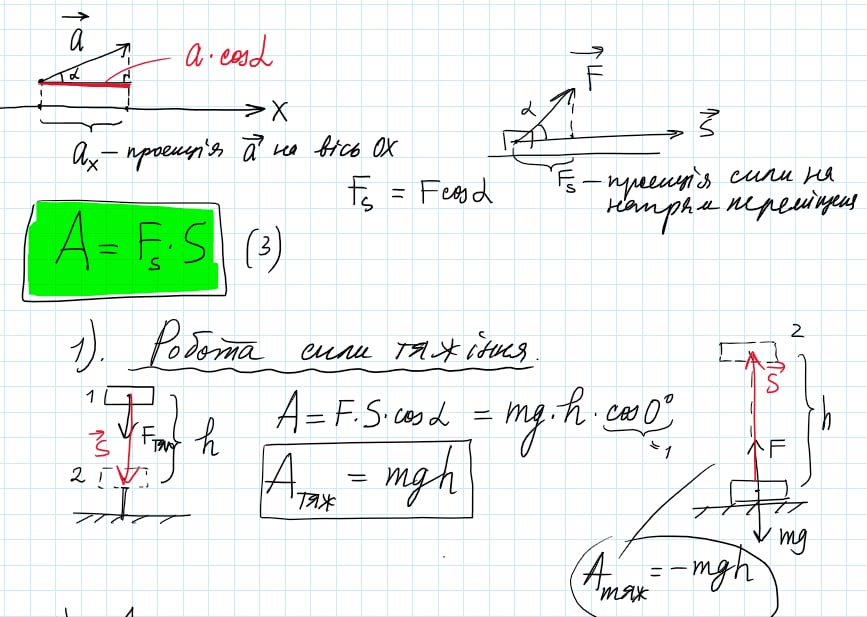 a⃗
a·cosα
α
X
aₓ – проекція a⃗ на вісь OX
F⃗
α
S⃗
Fₛ = Fcosα
Fₛ – проекція сили на
напрям переміщення
A = Fₛ · S (3)
1). Робота сили тяжіння.
1
S⃗
Fтяж
h
2
A = F·S·cosα = mg·h·cos0°
=1
Aтяж = mgh
2
S⃗
h
F
mg
Aтяж = -mgh